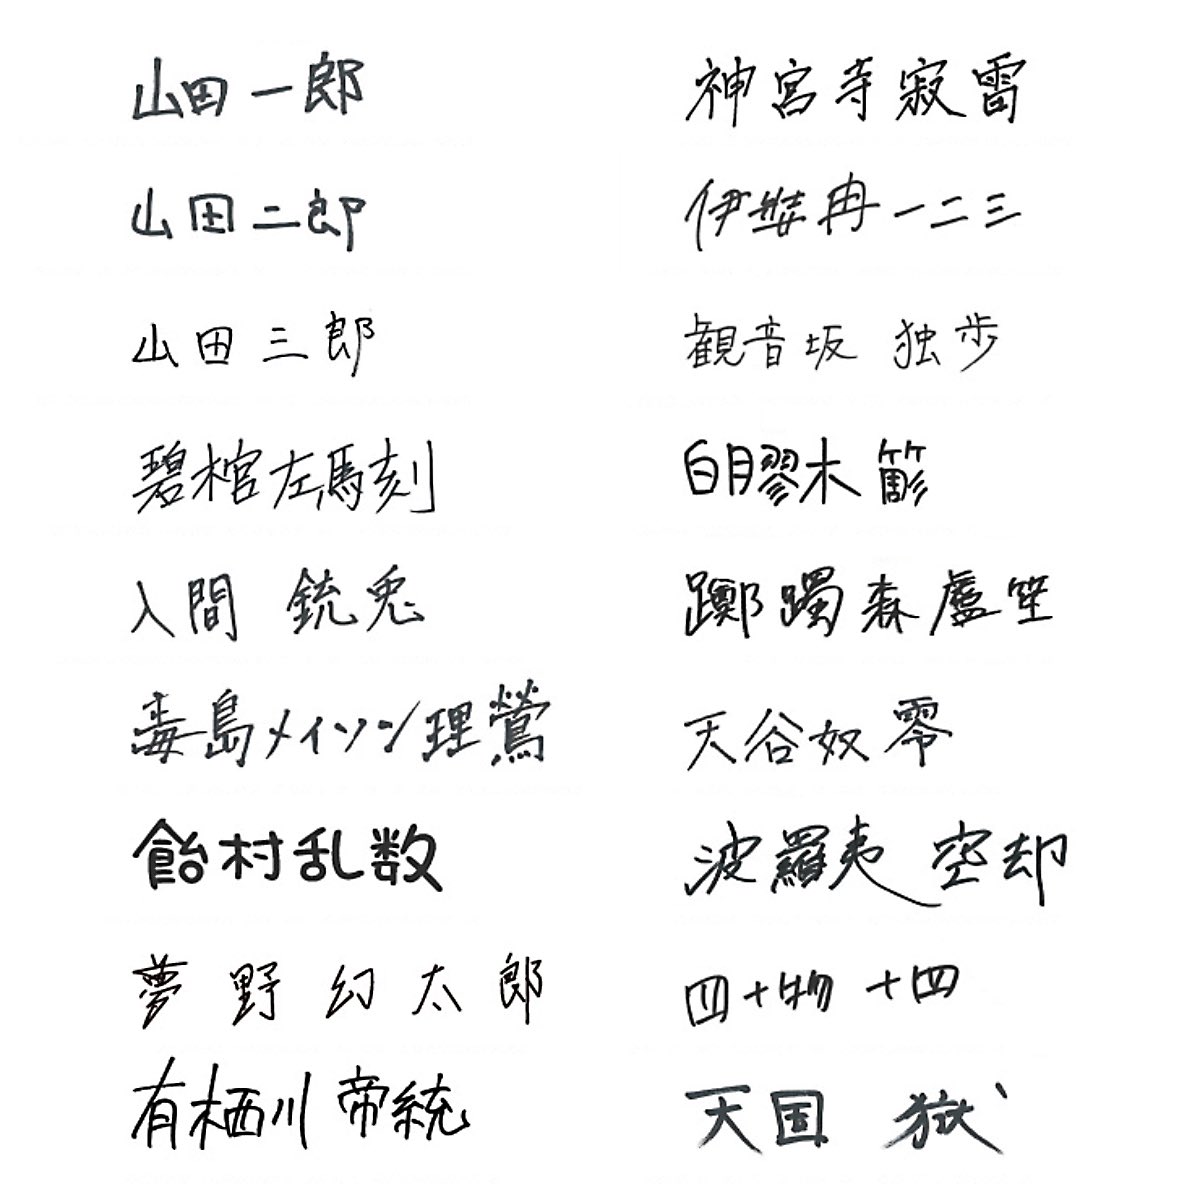 山田一郎
山田二郎
山田三郎
碧棺左馬刻
入間 銃兎
毒島メイソン理鶯
飴村乱数
夢野幻太郎
有栖川 帝統
神宮寺寂雷
伊弉冉一二三
観音坂 独歩
白膠木 簓
躑躅森盧笙
天谷奴零
波羅夷 空却
四十物 十四
天国 獄